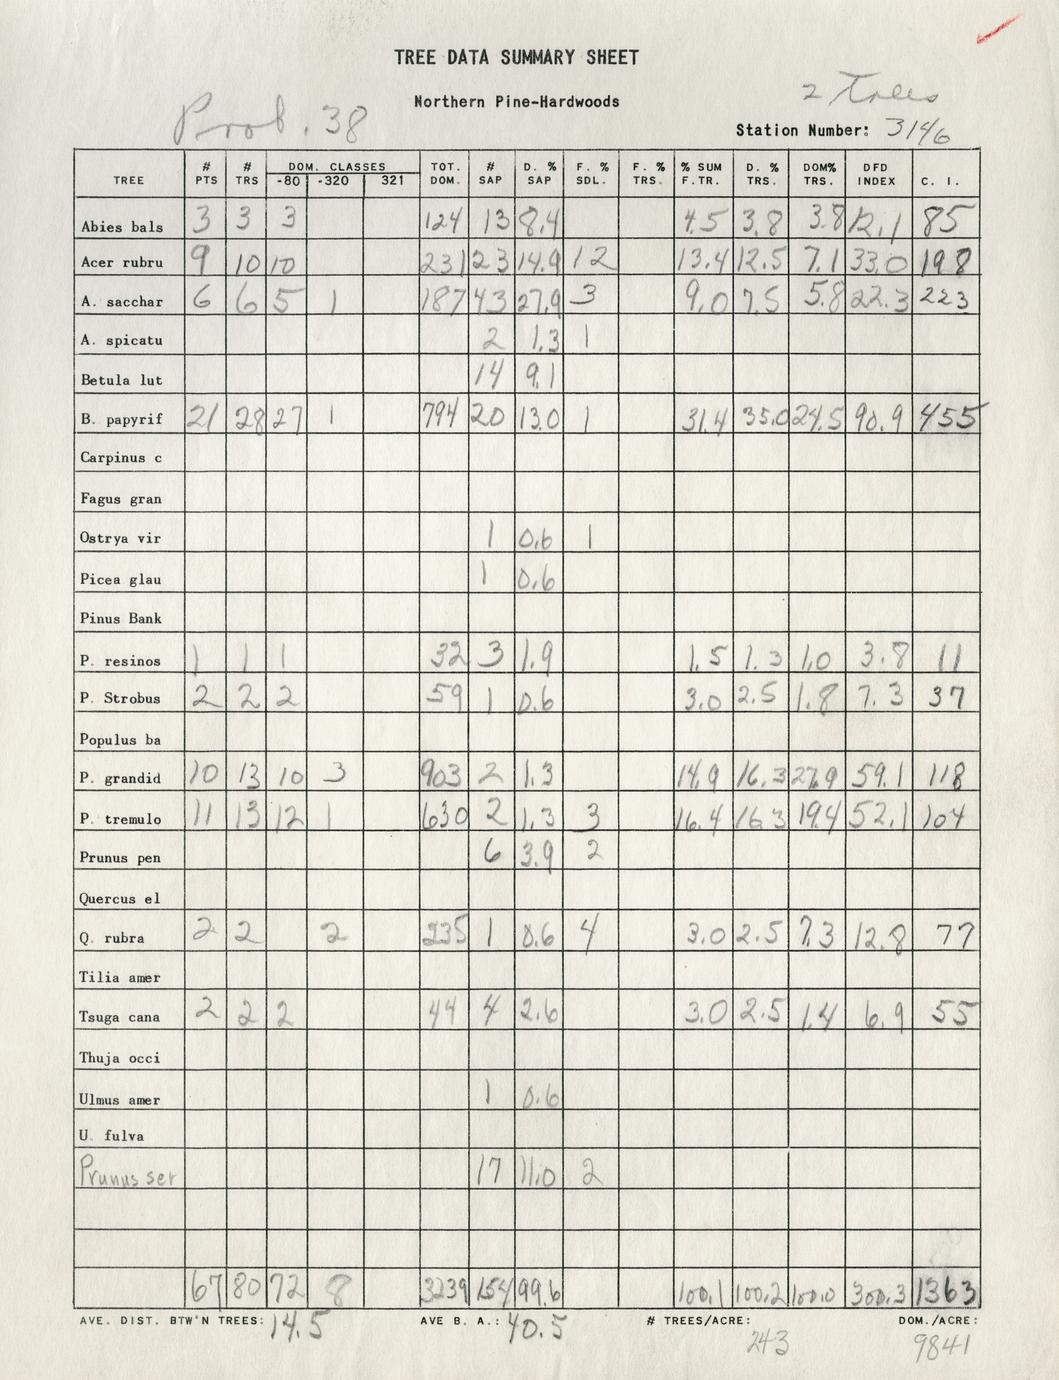 TREE DATA SUMMARY SHEET
Northern Pine-Hardwoods
2 Trees
Prob. 38
Station Number: 3146
TREE # PTS # TRS DOM. CLASSES -80 -320 321 TOT. DOM. # SAP D. % SAP F. % SDL. F. % TRS. % SUM F.TR. D. % TRS. DOM% TRS. DFD INDEX C. I.
Abies bals 3 3 3 124 13 8.4 4.5 3.8 3.8 12.1 85
Acer rubru 9 10 10 231 23 14.9 12 13.4 12.5 7.1 33.0 198
A. sacchar 6 6 5 1 187 43 27.9 3 9.0 7.5 5.8 22.3 223
A. spicatu 2 1.3 1
Betula lut 14 9.1
B. papyrif 21 28 27 1 794 20 13.0 1 31.4 35.0 24.5 90.9 455
Carpinus c
Fagus gran
Ostrya vir 1 0.6 1
Picea glau 1 0.6
Pinus Bank
P. resinos 1 1 1 32 3 1.9 1.5 1.3 1.0 3.8 11
P. Strobus 2 2 2 59 1 0.6 3.0 2.5 1.8 7.3 37
Populus ba
P. grandid 10 13 10 3 903 2 1.3 14.9 16.3 27.9 59.1 118
P. tremulo 11 13 12 1 630 2 1.3 3 16.4 16.3 19.4 52.1 104
Prunus pen 6 3.9 2
Quercus el
Q. rubra 2 2 2 235 1 0.6 4 3.0 2.5 7.3 12.8 77
Tilia amer
Tsuga cana 2 2 2 44 4 2.6 3.0 2.5 1.4 6.9 55
Thuja occi
Ulmus amer 1 0.6
U. fulva
Prunus ser 17 11.0 2
67 80 72 8 3239 154 99.6 100.1 100.2 100.0 300.3 1363
AVE. DIST. BTW'N TREES: 14.5 AVE B. A.: 40.5 # TREES/ACRE: 243 DOM./ACRE: 9841